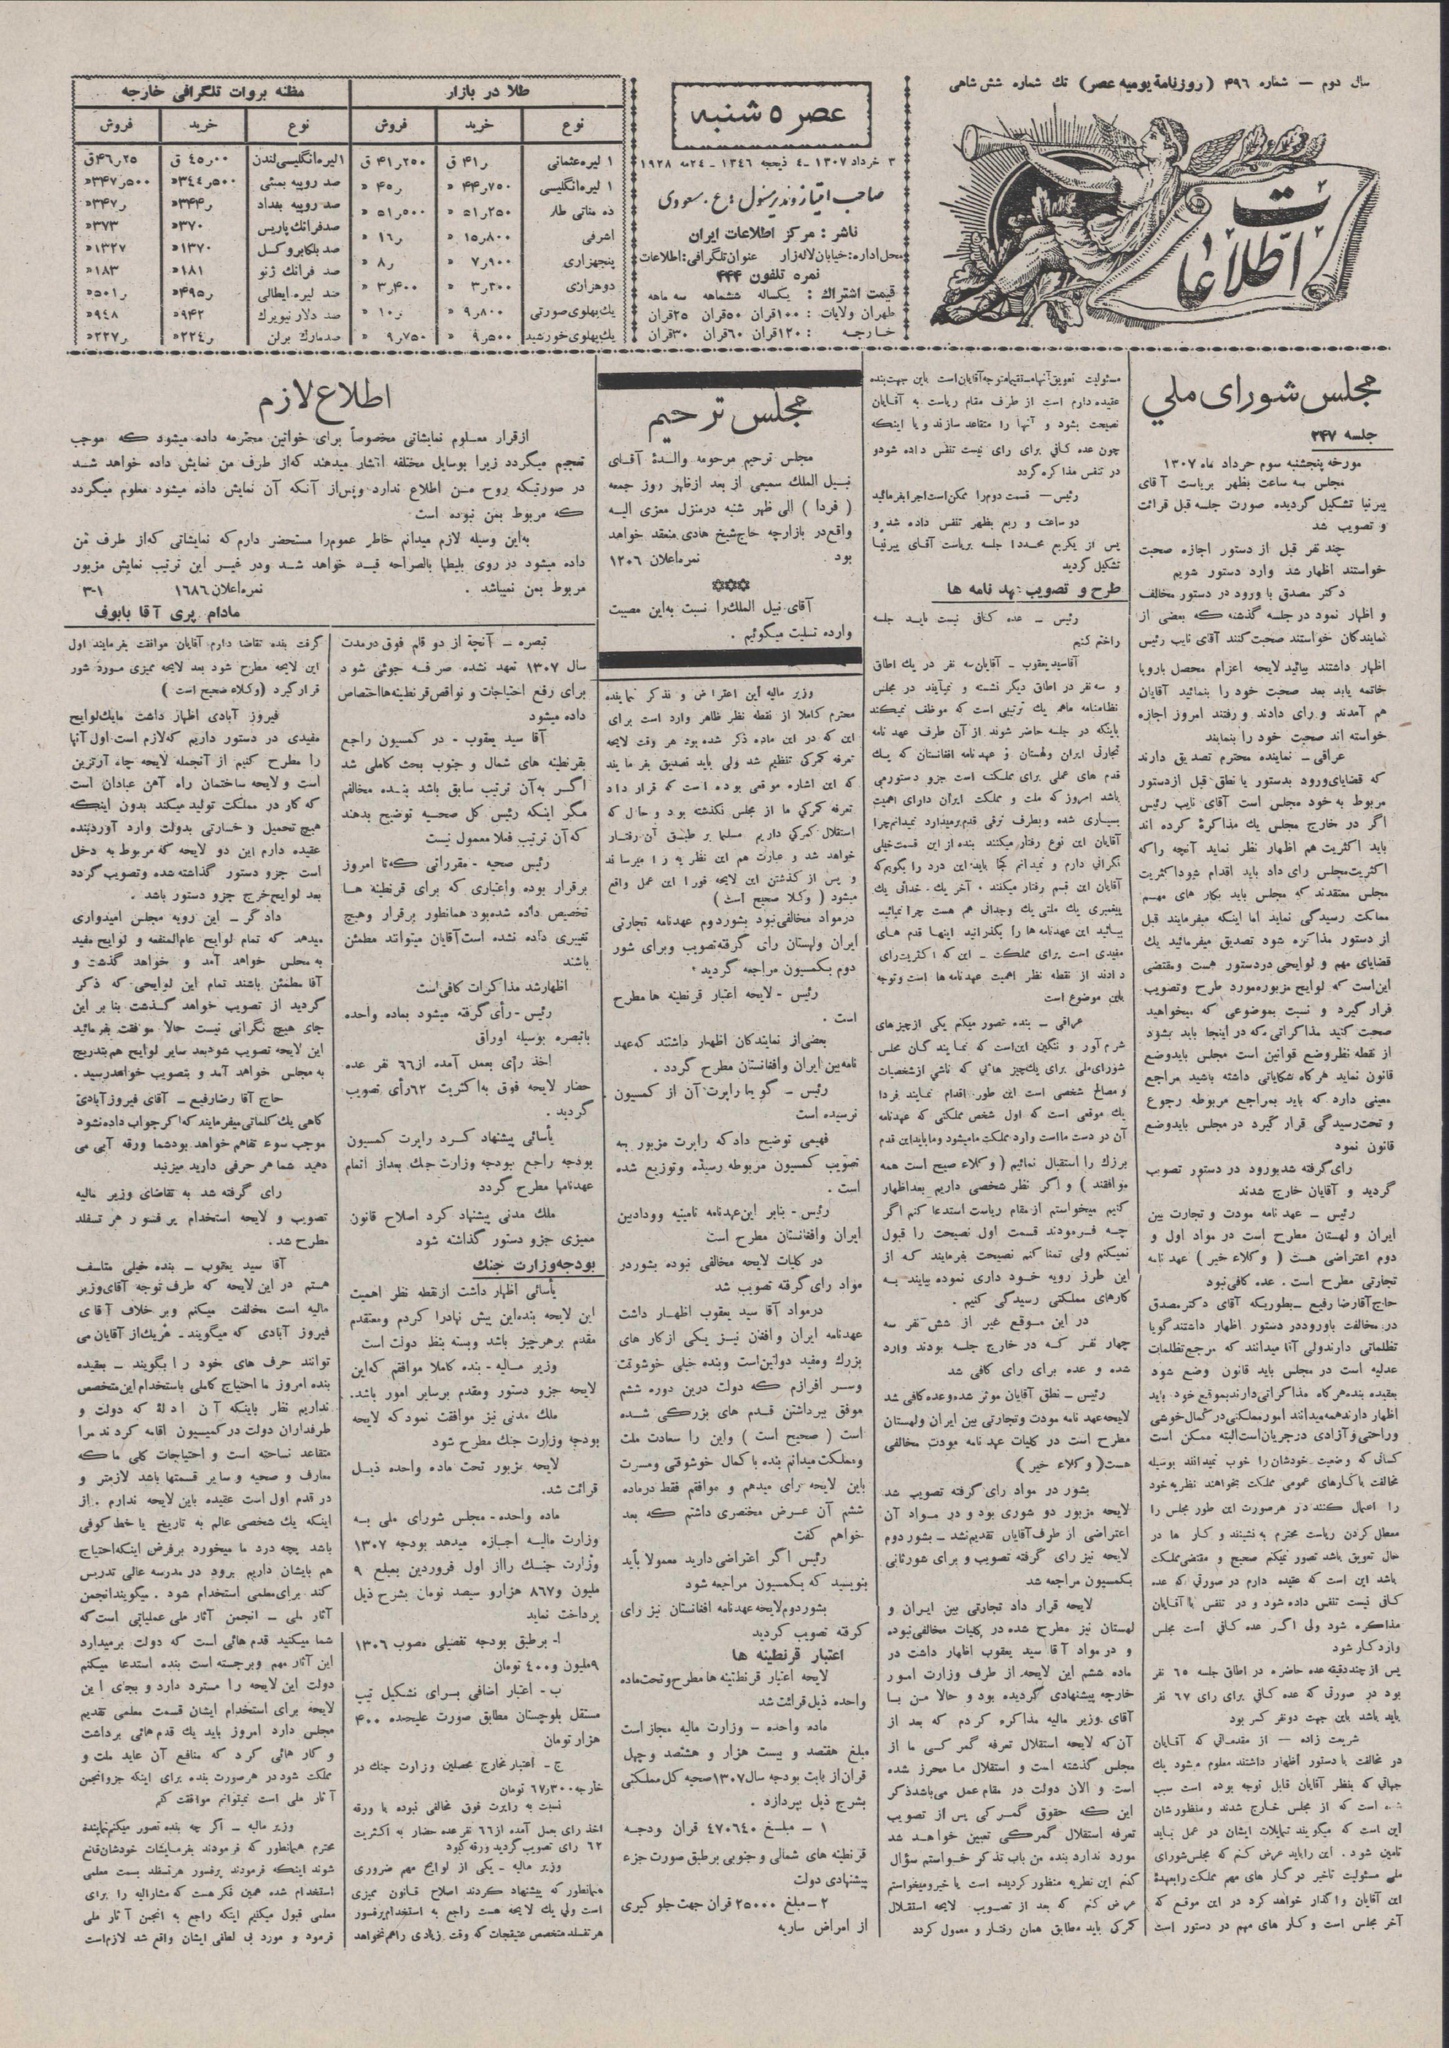 سال دوم — شماره ۴۹۶ (روزنامهٔ یومیه عصر) تك شماره شش شاهی
اطلاعات
عصر ۵ شنبه
۳ خرداد ۱۳۰۷ - ٤ ذیحجه ۱۳٤٦ - ۲٤ مه ۱۹۲۸
صاحب امتیاز و مدیر مسئول : ع. مسعودی
ناشر : مرکز اطلاعات ایران
محل اداره : خیابان لاله زار عنوان تلگرافی : اطلاعات
نمره تلفون ۴۴۴
قیمت اشتراك : یکساله ششماهه سه ماهه
طهران ولایات : ۱۰۰قران ۵۰قران ۲۵قران
خارجه : ۱۲۰قران ۶۰قران ۳۰قران
طلا در بازار
نوع خرید فروش
۱ لیره عثمانی ر۴۱ ق ۲۵۰ر۴۱ ق
۱ لیره انگلیسی ۷۵۰ر۴۴ « ر۴۵ «
ده مناتی طلا ۲۵۰ر۵۱ « ۵۰۰ر۵۱ «
اشرفی ۸۰۰ر۱۵ « ر۱۶ «
پنجهزاری ۹۰۰ر۷ « ر۸ «
دوهزاری ۲۰۰ر۳ « ۴۰۰ر۳ «
یك پهلوی صورتی ۸۰۰ر۹ « ر۱۰ «
یك پهلوی خورشید ۵۰۰ر۹ « ۷۵۰ر۹ «
مظنه بروات تلگرافی خارجه
نوع خرید فروش
۱ لیره انگلیسی لندن ۰۰ر۴۵ ق ۲۵ر۴۶ ق
صد روپیه بمبئی ۵۰۰ر۳۴۴ « ۵۰۰ر۳۴۷ «
صد روپیه بغداد ر۳۴۴ « ر۳۴۷ «
صد فرانك پاریس ۳۷۰ « ۳۷۳ «
صد بلگا بروکسل ۱۳۷۰ « ۱۳۲۷ «
صد فرانك ژنو ۱۸۱ « ۱۸۳ «
صد لیره ایطالی ر۴۹۵ « ر۵۰۱ «
صد دلار نیویرك ۹۴۲ « ۹۴۸ «
صد مارك برلن ر۲۲۴ « ر۲۲۷ «
مجلس شورای ملی
جلسه ۲۴۷
مورخه پنجشنبه سوم خرداد ماه ۱۳۰۷
مجلس سه ساعت بظهر بریاست آقای
پیرنیا تشکیل گردیده صورت جلسه قبل قرائت
و تصویب شد
چند نفر قبل از دستور اجازه صحبت
خواستند اظهار شد وارد دستور شویم
دکتر مصدق با ورود در دستور مخالف
و اظهار نمود در جلسه گذشته که بعضی از
نمایندگان خواستند صحبت کنند آقای نایب رئیس
اظهار داشتند بیائید لایحه اعزام محصل باروپا
خاتمه یابد بعد صحبت خود را بنمائید آقایان
هم آمدند و رای دادند و رفتند امروز اجازه
خواسته اند صحبت خود را بنمایند
عراقی — نماینده محترم تصدیق دارند
که قضایای ورود بدستور یا نطق قبل از دستور
مربوط به خود مجلس است آقای نایب رئیس
اگر در خارج مجلس یك مذاکرهٔ کرده اند
باید اکثریت هم اظهار نظر نماید آنچه را که
اکثریت مجلس رای داد باید اقدام شود اکثریت
مجلس معتقدند که مجلس باید بکار های مهم
مملکت رسیدگی نماید اما اینکه میفرمایند قبل
از دستور مذاکره شود تصدیق میفرمائید یك
قضایای مهم و لوایحی در دستور هست و مقتضی
این است که لوایح مزبوره مورد طرح و تصویب
قرار گیرد و نسبت بموضوعی که میخواهید
صحبت کنید مذاکراتی که در اینجا باید بشود
از نقطه نظر وضع قوانین است مجلس باید وضع
قانون نماید هرگاه شکایاتی داشته باشید مراجع
معینی دارد که باید بمراجع مربوطه رجوع
و تحت رسیدگی قرار گیرد در مجلس باید وضع
قانون نمود
رای گرفته شد بورود در دستور تصویب
گردید و آقایان خارج شدند
رئیس — عهد نامه مودت و تجارت بین
ایران و لهستان مطرح است در مواد اول و
دوم اعتراضی هست ( وکلاء خیر ) عهد نامه
تجارتی مطرح است . عده کافی نبود
حاج آقا رضا رفیع — بطوریکه آقای دکتر مصدق
در مخالفت با ورود در دستور اظهار داشتند گویا
تظلماتی دارند ولی آنا میدانند که مرجع تظلمات
عدلیه است در مجلس باید قانون وضع شود
بعقیده بنده هرگاه مذاکراتی دارند بموقع خود باید
اظهار دارند همه میدانند امور مملکتی در کمال خوشی
و راحتی و آزادی در جریان است البته ممکن است
کسانی که وضعیت خودشان را خوب نمیدانند بوسیله
مخالفت با کارهای عمومی مملکت بخواهند نظریه خود
را اعمال کنند در هر صورت این طور مجلس را
معطل کردن ریاست محترم به نشینند و کار ها در
حال تعویق باشد تصور نمیکنم صحیح و مقتضی مملکت
باشد این است که عقیده دارم در صورتی که عده
کافی نیست تنفس داده شود و در تنفس با آقایان
مذاکره شود ولی اگر عده کافی است مجلس
وارد کار شود
پس از چند دقیقه عده حاضره در اطاق جلسه ۶۵ نفر
بود در صورتی که عده کافی برای رای ۶۷ نفر
باید باشد باین جهت دو نفر کسر بود
شریعت زاده — از مقدماتی که آقایان
در مخالفت با دستور اظهار داشتند معلوم میشود یك
جهاتی که بنظر آقایان قابل توجه بوده است سبب
شده است که از مجلس خارج شدند و منظورشان
این است که میگویند تمایلات ایشان در عمل نباید
تامین شود . این را باید عرض کنم که مجلس شورای
ملی مسئولیت تاخیر در کار های مهم مملکت را بعهدهٔ
این آقایان واگذار خواهد کرد در این موقع که
آخر مجلس است و کار های مهم در دستور است
مسئولیت تعویق آنها مستقیما متوجه آقایان است باین جهت بنده
عقیده دارم است از طرف مقام ریاست به آقایان
نصیحت بشود و آنها را متقاعد سازند و یا اینکه
چون عده کافی برای رای نیست تنفس داده شود و
در تنفس مذاکره گردد
رئیس — قسمت دوم را ممکن است اجرا بفرمائید
دو ساعت و ربع بظهر تنفس داده شد و
پس از یکربع مجددا جلسه بریاست آقای پیرنیا
تشکیل گردید
طرح و تصویب عهد نامه ها
رئیس — عده کافی نیست باید جلسه
را ختم کنیم
آقا سید یعقوب — آقایان سه نفر در یك اطاق
و سه نفر در اطاق دیگر نشسته و نمیآیند در مجلس
نظامنامه ما هم یك ترتیبی است که موظف نمیکند
باینکه در جلسه حاضر شوند از آن طرف عهد نامه
تجارتی ایران و لهستان و عهد نامه افغانستان که یك
قدم های عملی برای مملکت است جزو دستور می
باشد امروز که ملت و مملکت ایران دارای اهمیت
بسیاری شده و بطرف ترقی قدم برمیدارد نمیدانم چرا
آقایان این نوع رفتار میکنند بنده از این قسمت خیلی
نگرانی دارم و نمیدانم کجا باید این درد را بگویم که
آقایان این قسم رفتار میکنند . آخر یك خدائی یك
پیغمبری یك ملتی یك وجدانی هم هست چرا نمیائید
بیائید این عهدنامه ها را بگذرانید اینها قدم های
مفیدی است برای مملکت — این که اکثریت رای
دادند از نقطه نظر اهمیت عهدنامه ها است و توجه
باین موضوع است
عراقی — بنده تصور میکنم یکی از چیزهای
شرم آور و ننگین این است که نمایندگان مجلس
شورای ملی برای یك چیز هائی که ناشی از شخصیات
و مصالح شخصی است این طور اقدام نمایند فردا
یك موقعی است که اول شخص مملکتی که عهدنامه
آن در دست ما است وارد مملکت ما میشود و ما باید این قدم
بزرگ را استقبال نمائیم ( وکلاء صیح است همه
موافقند ) و اگر نظر شخصی داریم بعد اظهار
کنیم میخواستم از مقام ریاست استدعا کنم اگر
چه فرمودند قسمت اول نصیحت را قبول
نمیکنم ولی تمنا کنم نصیحت بفرمایند که از
این طرز رویه خود داری نموده بیایند به
کارهای مملکتی رسیدگی کنیم .
در این موقع غیر از شش نفر سه
چهار نفر که در خارج جلسه بودند وارد
شده و عده برای رای کافی شد
رئیس — نطق آقایان موثر شده و عده کافی شد
لایحه عهد نامه مودت و تجارتی بین ایران و لهستان
مطرح است در کلیات عهد نامه مودت مخالفی
هست ( وکلاء خیر )
بشور در مواد رای گرفته تصویب شد
لایحه مزبور دو شوری بود و در مواد آن
اعتراضی از طرف آقایان تقدیم نشد — بشور دوم
لایحه نیز رای گرفته تصویب و برای شور ثانی
بکمسیون مراجعه شد
لایحه قرار داد تجارتی بین ایران و
لهستان نیز مطرح شده در کلیات مخالفی نبوده
و در مواد آقا سید یعقوب اظهار داشت در
ماده ششم این لایحه از طرف وزارت امور
خارجه پیشنهادی گردیده بود و حالا من با
آقای وزیر مالیه مذاکره کردم که بعد از
آن که لایحه استقلال تعرفه گمرکی ما از
مجلس گذشته است و استقلال ما محرز شده
است و الان دولت در مقام عمل می باشد ذکر
این که حقوق گمرکی پس از تصویب
تعرفه استقلال گمرکی تعیین خواهد شد
مورد ندارد بنده من باب تذکر خواستم سؤال
کنم این نظریه منظور گردیده است یا خیر و میخواستم
عرض کنم که بعد از تصویب لایحه استقلال
گمرکی باید مطابق همان رفتار و معمول گردد
مجلس ترحیم
مجلس ترحیم مرحومه والدهٔ آقای
نبیل الملك سمیعی از بعد از ظهر روز جمعه
( فردا ) الی ظهر شنبه در منزل معزی الیه
واقع در بازارچه حاج شیخ هادی منعقد خواهد
بود نمره اعلان ۱۲۰۶
آقای نبیل الملك را نسبت به این مصیبت
وارده تسلیت میگوئیم .
وزیر مالیه این اعتراض و تذکر نماینده
محترم کاملا از نقطه نظر ظاهر وارد است برای
این که در این ماده ذکر شده بود هر وقت لایحه
تعرفه گمرکی تنظیم شد ولی باید تصدیق بفرمایند
که این اشاره موقعی بوده است که قرار داد
تعرفه گمرکی ما از مجلس نگذشته بود و حال که
استقلال گمرکی داریم مسلما بر طبق آن رفتار
خواهد شد و عبارت هم این نظریه را میرساند
و پس از گذشتن این لایحه فورا این عمل واقع
میشود ( وکلا صحیح است )
در مواد مخالفی نبود بشور دوم عهدنامه تجارتی
ایران و لهستان رای گرفته تصویب و برای شور
دوم بکمسیون مراجعه گردید .
رئیس — لایحه اعتبار قرنطینه ها مطرح
است .
بعضی از نمایندگان اظهار داشتند که عهد
نامه بین ایران و افغانستان مطرح گردد .
رئیس — گویا راپرت آن از کمسیون
نرسیده است
فهیمی توضیح داد که راپرت مزبور به
تصویب کمسیون مربوطه رسیده و توزیع شده
است .
رئیس — بنابر این عهدنامه تامینیه و ودادین
ایران و افغانستان مطرح است
در کلیات لایحه مخالفی نبوده بشور در
مواد رای گرفته تصویب شد
در مواد آقا سید یعقوب اظهار داشت
عهدنامه ایران و افغان نیز یکی از کار های
بزرگ و مفید دولتین است و بنده خیلی خوشوقت
و سر افرازم که دولت درین دوره ششم
موفق ببرداشتن قدم های بزرگی شده
است ( صحیح است ) و این را سعادت ملت
و مملکت میدانم بنده با کمال خوشوقتی و مسرت
باین لایحه رای میدهم و موافقم فقط در ماده
ششم آن عرض مختصری داشتم که بعد
خواهم گفت
رئیس اگر اعتراضی دارید معمولا باید
بنویسید که بکمسیون مراجعه شود
بشور دوم لایحه عهدنامه افغانستان نیز رای
گرفته تصویب گردید
اعتبار قرنطینه ها
لایحه اعتبار قرنطینه ها مطرح و تحت ماده
واحده ذیل قرائت شد
ماده واحده — وزارت مالیه مجاز است
مبلغ هفتصد و بیست هزار و هشتصد و چهل
قران از بابت بودجه سال ۱۳۰۷ صحیه کل مملکتی
بشرح ذیل بپردازد .
۱ — مبلغ ۴۷۰۶۴۰ قران ودجه
قرنطینه های شمالی و جنوبی بر طبق صورت جزء
پیشنهادی دولت
۲ — مبلغ ۲۵۰۰۰ قران جهت جلوگیری
از امراض ساریه
اطلاع لازم
از قرار معلوم نمایشاتی مخصوصاً برای خواتین محترمه داده میشود که موجب
تعجبم میگردد زیرا بوسایل مختلفه انتشار میدهند که از طرف من نمایش داده خواهد شد
در صورتیکه روح من اطلاع ندارد و پس از آنکه آن نمایش داده میشود معلوم میگردد
که مربوط بمن نبوده است
به این وسیله لازم میدانم خاطر عموم را مستحضر دارم که نمایشاتی که از طرف من
داده میشود در روی بلیطها بالصراحه قید خواهد شد و در غیر این ترتیب نمایش مزبور
مربوط بمن نمیباشد . نمره اعلان ۱۶۸۶ ۳-۱
مادام پری آقا بابوف
تبصره — آنچه از دو قلم فوق در مدت
سال ۱۳۰۷ تعهد نشده صرفه جوئی شود
برای رفع احتیاجات و نواقص قرنطینه ها اختصاص
داده میشود
آقا سید یعقوب — در کمسیون راجع
بقرنطینه های شمال و جنوب بحث کاملی شد
اگر به آن ترتیب سابق باشد بنده مخالفم
مگر اینکه رئیس کل صحیه توضیح بدهند
که آن ترتیب فعلا معمول نیست
رئیس صحیه — مقرراتی که تا امروز
برقرار بوده و اعتباری که برای قرنطینه ها
تخصیص داده شده بود همانطور برقرار و هیچ
تغییری داده نشده است آقایان میتوانند مطمئن
باشند
اظهار شد مذاکرات کافی است
رئیس — رأی گرفته میشود بماده واحده
با تبصره بوسیله اوراق
اخذ رأی بعمل آمده از ۶۶ نفر عده
حضار لایحه فوق به اکثریت ۶۲ رأی تصویب
گردید .
یاسائی پیشنهاد کرد راپرت کمسیون
بودجه راجع ببودجه وزارت جنك بعد از اتمام
عهدنامها مطرح گردد
ملك مدنی پیشنهاد کرد اصلاح قانون
ممیزی جزو دستور گذاشته شود
بودجه وزارت جنك
یاسائی اظهار داشت از نقطه نظر اهمیت
این لایحه بنده این پیش نهاد را کردم و معتقدم
مقدم بر هر چیز باشد و بسته بنظر دولت است
وزیر مالیه — بنده کاملا موافقم که این
لایحه جزو دستور و مقدم بر سایر امور باشد.
ملك مدنی نیز موافقت نمود که لایحه
بودجه وزارت جنك مطرح شود
لایحه مزبور تحت ماده واحده ذیل
قرائت شد.
ماده واحده — مجلس شورای ملی به
وزارت مالیه اجازه میدهد بودجه ۱۳۰۷
وزارت جنك را از اول فروردین بمبلغ ۹
ملیون و ۸۶۷ هزار و سیصد تومان بشرح ذیل
پرداخت نماید
ا — بر طبق بودجه تفصیلی مصوب ۱۳۰۶
۹ ملیون و ۴۰۰ تومان
ب — اعتبار اضافی برای تشکیل تیپ
مستقل بلوچستان مطابق صورت علیحده ۴۰۰
هزار تومان
ج — اعتبار مخارج محصلین وزارت جنك در
خارجه ۳۰۰ر۶۷ تومان
نسبت به راپرت فوق مخالفی نبوده با ورقه
اخذ رای بعمل آمده از ۶۶ نفر عده حضار به اکثریت
۶۲ رای تصویب گردید ورقه کبود
وزیر مالیه — یکی از لوایح مهم ضروری
همانطور که پیشنهاد کردند اصلاح قانون ممیزی
است ولی یك لایحه هست راجع به استخدام پرفسور
هرتسفلد متخصص عتیقجات که وقت زیادی را هم نخواهد
گرفت بنده تقاضا دارم آقایان موافقت بفرمایند اول
این لایحه مطرح شود بعد لایحه ممیزی مورد شور
قرار گیرد ( وکلاء صحیح است )
فیروز آبادی اظهار داشت ما یك لوایح
مفیدی در دستور داریم که لازم است اول آنها
را مطرح کنیم از آنجمله لایحه چاه آرتزین
است و لایحه ساختمان راه آهن عبادان است
که کار در مملکت تولید میکند بدون اینکه
هیچ تحمیل و خسارتی بدولت وارد آورد بنده
عقیده دارم این دو لایحه که مربوط به دخل
است جزو دستور گذاشته شده و تصویب گردد
بعد لوایح خرج جزو دستور باشد .
دادگر — این رویه مجلس امیدواری
میدهد که تمام لوایح عام المنفعه و لوایح مفید
به مجلس خواهد آمد و خواهد گذشت و
آقا مطمئن باشند تمام این لوایحی که ذکر
گردید از تصویب خواهد گذشت بنا بر این
جای هیچ نگرانی نیست حالا موافقت بفرمائید
این لایحه تصویب شود بعد سایر لوایح هم بتدریج
به مجلس خواهد آمد و بتصویب خواهد رسید.
حاج آقا رضا رفیع — آقای فیروز آبادی
گاهی یك کلماتی میفرمایند که اگر جواب داده نشود
موجب سوء تفاهم خواهد بود شما ورقه آبی می
دهید شما هر حرفی دارید میزنید
رای گرفته شد به تقاضای وزیر مالیه
تصویب و لایحه استخدام پرفسور هرتسفلد
مطرح شد .
آقا سید یعقوب — بنده خیلی متاسف
هستم در این لایحه که طرف توجه آقای وزیر
مالیه است مخالفت میکنم و بر خلاف آقای
فیروز آبادی که میگویند — هر یك از آقایان می
توانند حرف های خود را بگویند — بعقیده
بنده امروز ما احتیاج کاملی باستخدام این متخصص
نداریم نظر باینکه آن ادلهٔ که دولت و
طرفداران دولت در کمیسیون اقامه کردند مرا
متقاعد نساخته است و احتیاجات کلی ما که
معارف و صحیه و سایر قسمتها باشد لازمتر و
در قدم اول است عقیده باین لایحه ندارم . از
اینکه یك شخصی عالم به تاریخ یا خط کوفی
باشد بچه درد ما میخورد بر فرض اینکه احتیاج
هم بایشان داریم برود در مدرسه عالی تدریس
کند برای معلمی استخدام شود . میگویند انجمن
آثار ملی — انجمن آثار ملی عملیاتی است که
شما میکنید قدم هائی است که دولت برمیدارد
این آثار مهم و برجسته است بنده استدعا میکنم
دولت این لایحه را مسترد دارد و بجای این
لایحه برای استخدام ایشان قسمت معلمی تقدیم
مجلس دارد امروز باید یك قدم هائی برداشت
و کار هائی کرد که منافع آن عاید ملت و
مملکت شود در هر صورت بنده برای اینکه جزو انجمن
آثار ملی است نمیتوانم موافقت کنم
وزیر مالیه — اگر چه بنده تصور میکنم نماینده
محترم همانطور که فرمودند بفرمایشات خودشان قانع
شوند اینکه فرمودند پرفسور هرتسفلد بسمت معلمی
استخدام شده همین فکر هست که مشارالیه را برای
معلمی قبول میکنیم اینکه راجع به انجمن آثار ملی
فرمود و مورد بی لطفی ایشان واقع شد لازم است